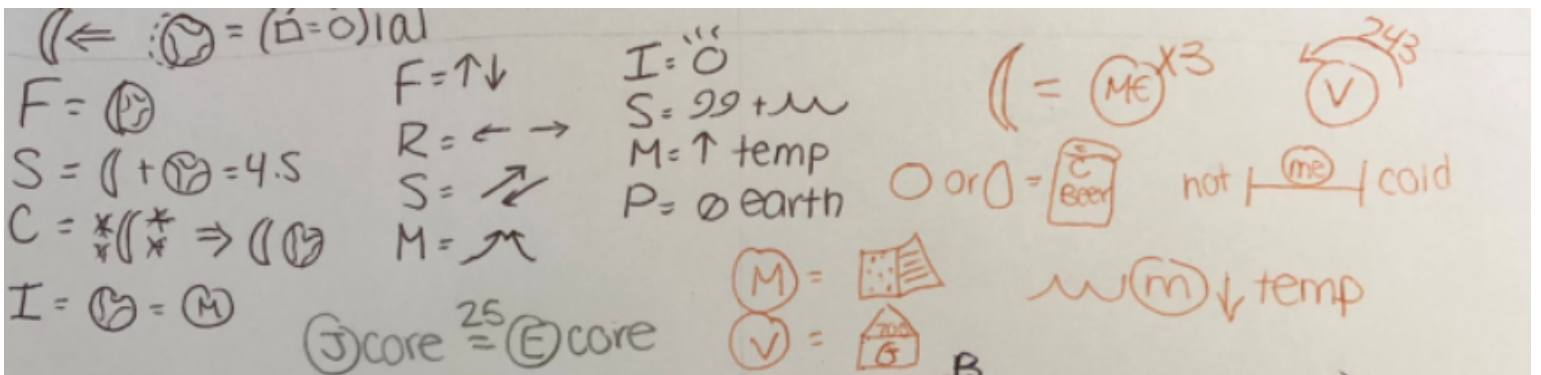 F =
S = + = 4.5
C = * * * * ⇒
I = = M
F = ↑↓
R = ← →
S =
M =
I =
S = 99 +
M = ↑ temp
P = ∅ earth
J core 25 = E core
= ME x3
243
V
O or = C Beer
not me cold
M =
V = G
m ↓ temp
B